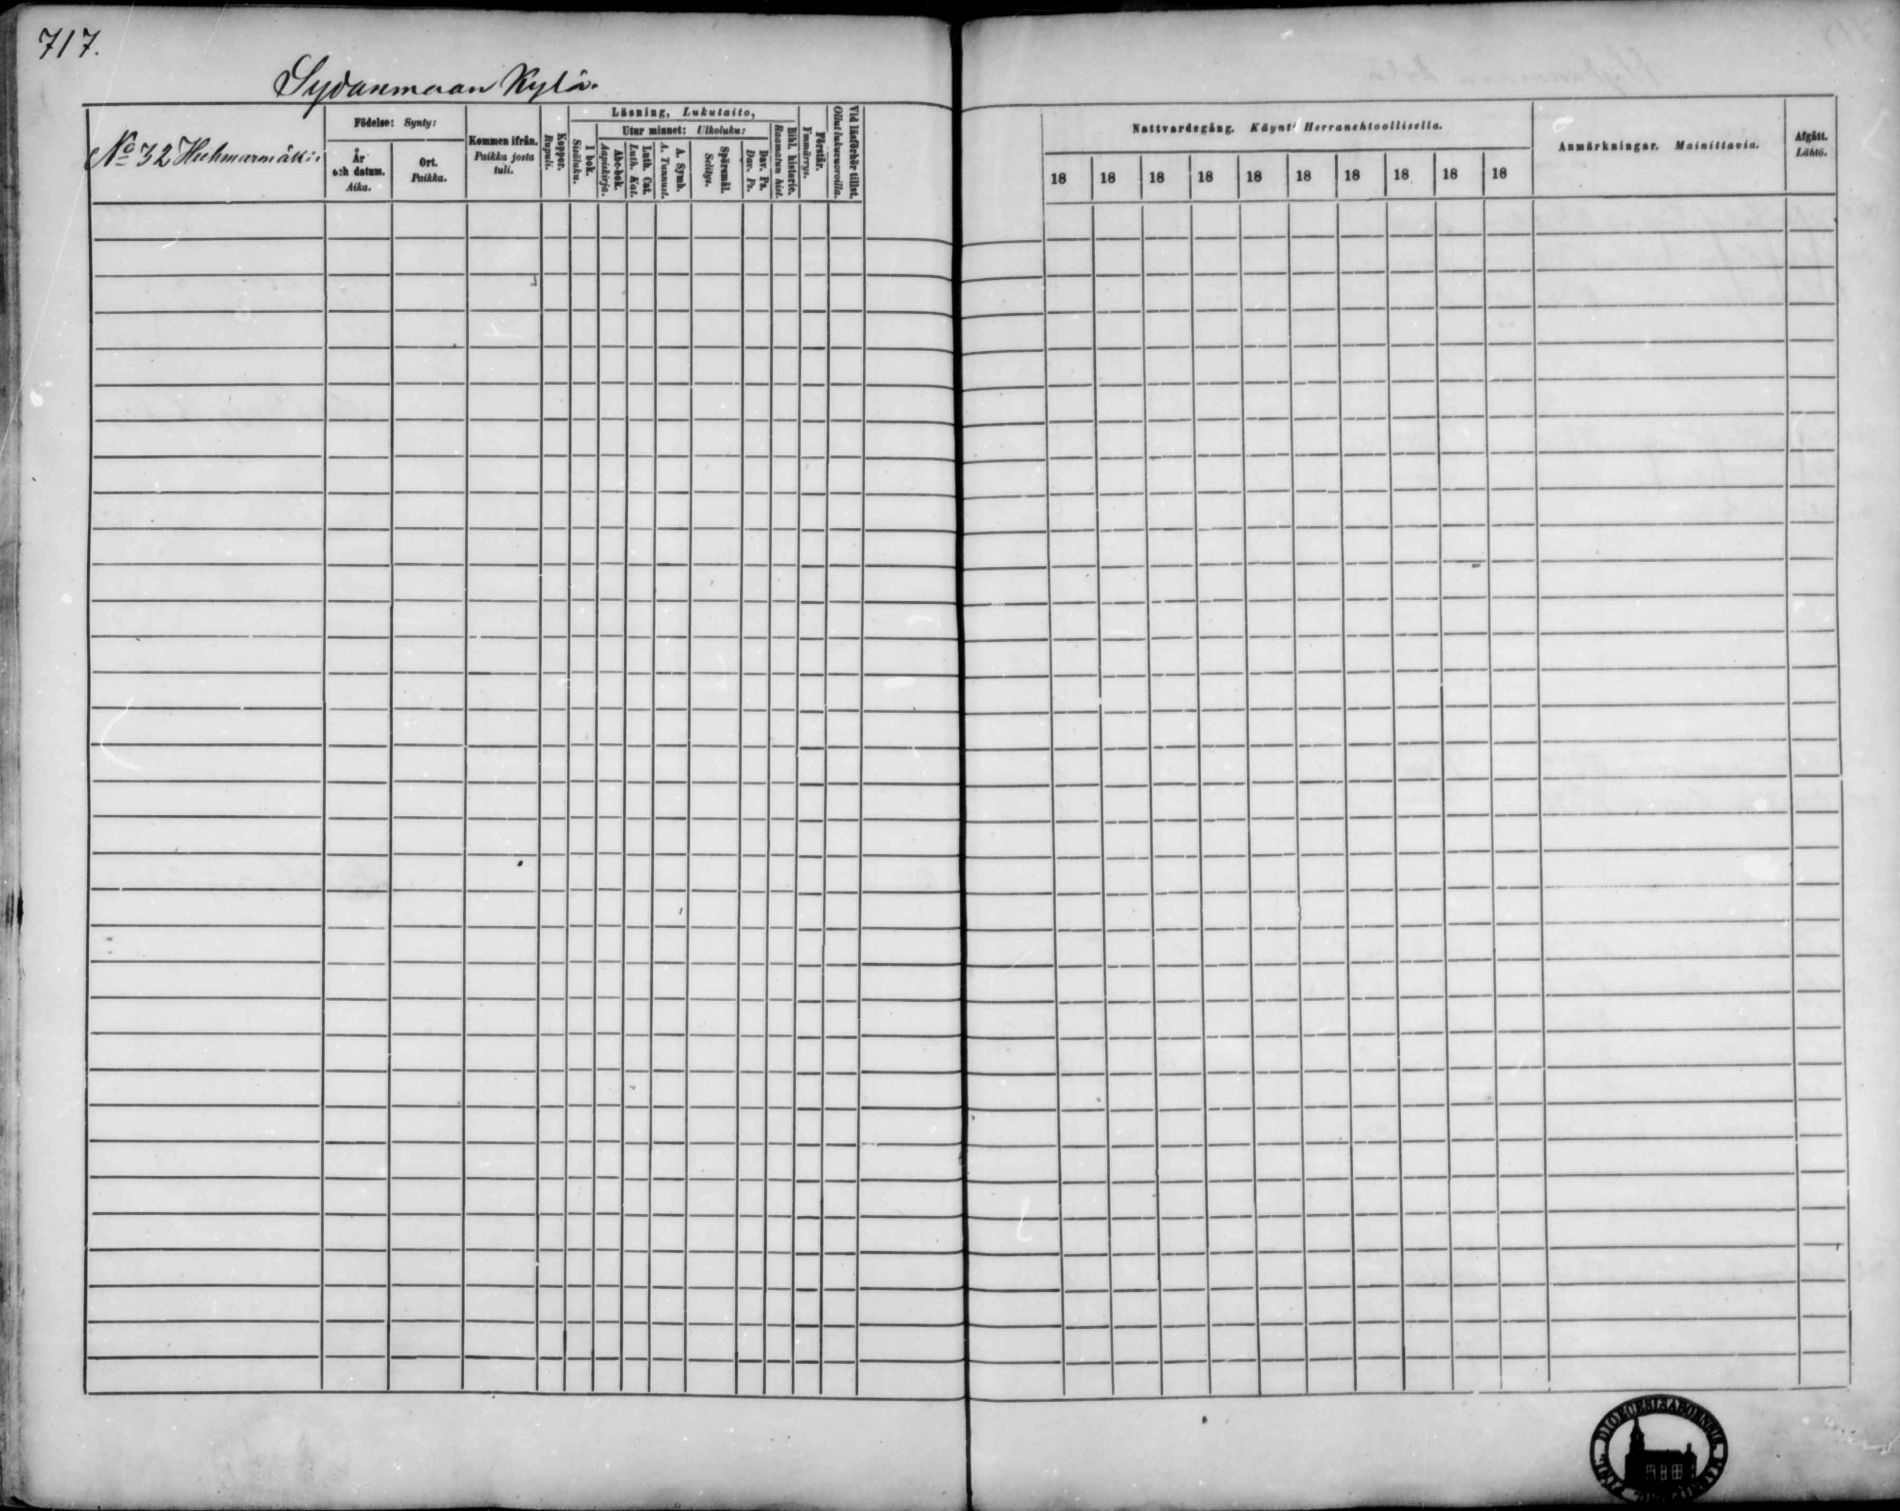 717.
Sydänmaan Kylä.
No 32
Födelse: Synty:
År och datum. Aika.
Ort. Paikka.
Kommen ifrån. Paikka josta tuli.
Koppor. Rupuli.
Läsning, Lukutaito,
I bok. Sisäluku.
Utur minnet: Ulkoluku:
Abc-bok. Aapiskirja.
Luth. Cat. Luth. Kat.
A. Symb. A. Tunnust.
Spörsmål. Selitys.
Dav. Ps. Dav. Ps.
Bibl. historie. Raamatun hist.
Förstår. Ymmärrys.
Vid läsförhör tillst. Ollut lukuvuoroilla.
Nattvardsgång. Käynti Herranehtoollisella.
18 18 18 18 18 18 18 18 18 18
Anmärkningar. Mainittavia.
Afgått. Lähtö.
DIOECESIS ABOENSIS